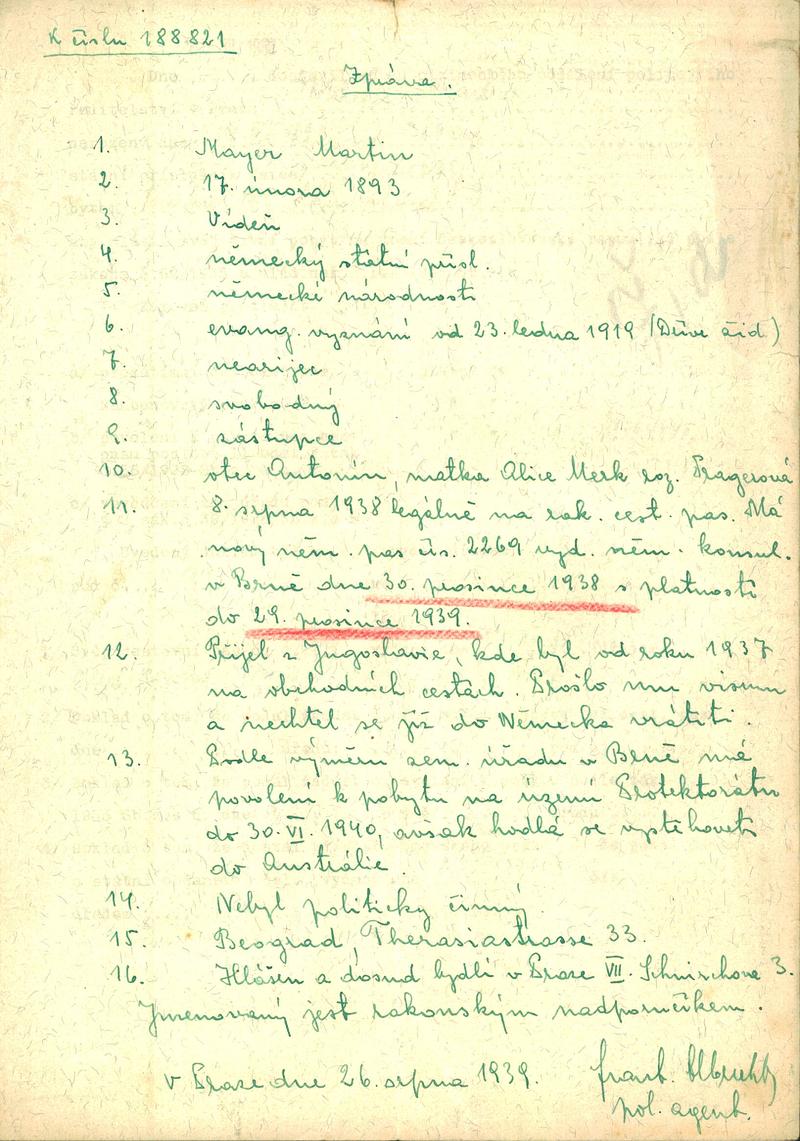 K číslu 188821
Zpráva.
1. Mayer Martin
2. 17. února 1893
3. Vídeň
4. německý státní přísl.
5. německé národnosti
6. evang. vyznání od 23. ledna 1919 (Dříve žid)
7. nearijec
8. svobodný
9. zástupce
10. otec Antonín, matka Alice Merk roz. Pragerová
11. 8. srpna 1938 legálně na rak. cest. pas. Má
nový něm. pas čís. 2269 vyd. něm. konsul.
v Brně dne 30. prosince 1938 s platností
do 29. prosince 1939.
12. Přijel z Jugoslavie, kde byl od roku 1937
na obchodních cestách. Prošlo mu visum
a nechtěl se již do Německa vrátiti.
13. Podle výměru zem. úřadu v Brně má
povolení k pobytu na území Protektorátu
do 30. VI. 1940, avšak hodlá se vystěhovati
do Austrálie.
14. Nebyl politicky činný.
15. Beograd, Therasiastrasse 33.
16. Hlášen a dosud bydlí v Praze VII. Schnirchova 3.
Jmenovaný jest rakouským nadporučíkem.
V Praze dne 26. srpna 1939.
frant. Albrecht
pol. agent.